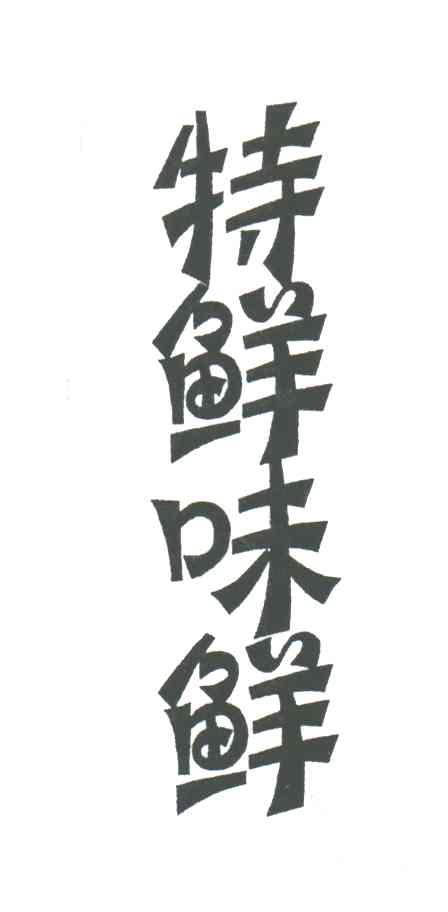 特鲜味鲜